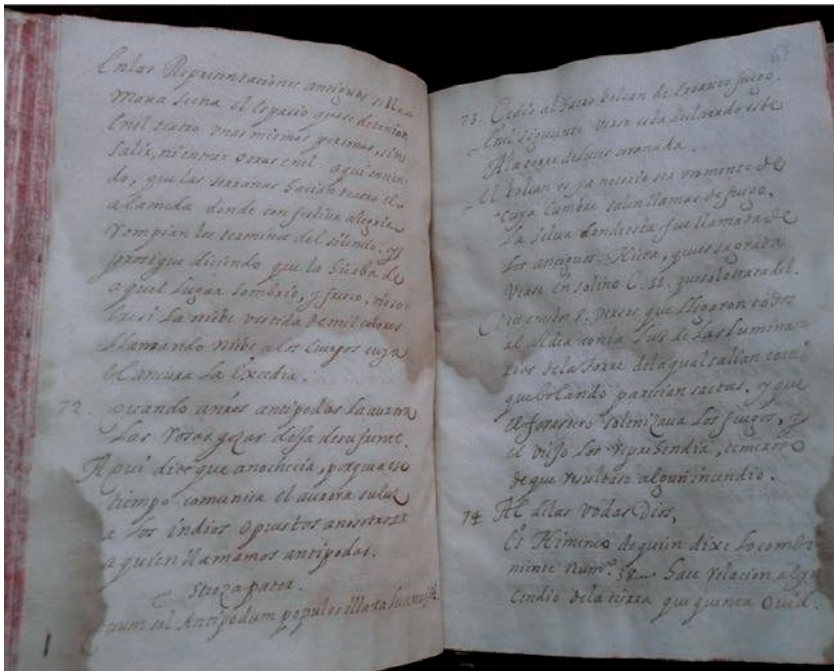 Enlas Representaciones antiguas se lla-
mava scena el espacio que se detenian
Enel teatro unas mismas personas, sin
salir, ni entrar otras enel. aqui
do, que las serranas hacian teatro el
alameda donde con festiva alegria
rompian los terminos del silencio. y
prosigue diciendo que la hierba de
aquel lugar sombrio, y fresco,
la nieve vestida de mil colores
llamando nieve a los cuerpos cuya
blancura la excedia.
72. quando a nros antipodas la aurora
Las rosas gozar dexa de su frente.
Aqui dice que anochecia, porque a ese
tiempo comunica el aurora su luz
a los indios opuestos a nosotros
a quien llamamos antipodas.
Stroza pater.
cum sol Antipodum populos
73. Cedio al sacro bolcan de errante fuego.
Enel siguiente verso esta declarado este
A la torre de luces coronada.
El bolcan es ya notorio sea un monte de
cuya cumbre salen llamas de fuego,
La selva donde esta fue llamada de
los antiguos Hiera, que es sagrada
Vease en solino C. 11. que
en estos 8. versos que llegaron todos
al aldea con la luz de las lumina-
rias de la torre de la qual salian
que bolando parecian saetas, y que
el forastero solenizava los fuegos, y
el viejo los reprehendia, temeroso
de que resultase algun incendio.
74 Al de las bodas Dios,
Es Himeneo de quien dixe lo combe
niente num.º 58 Hace relacion al yn
cendio de la tierra que